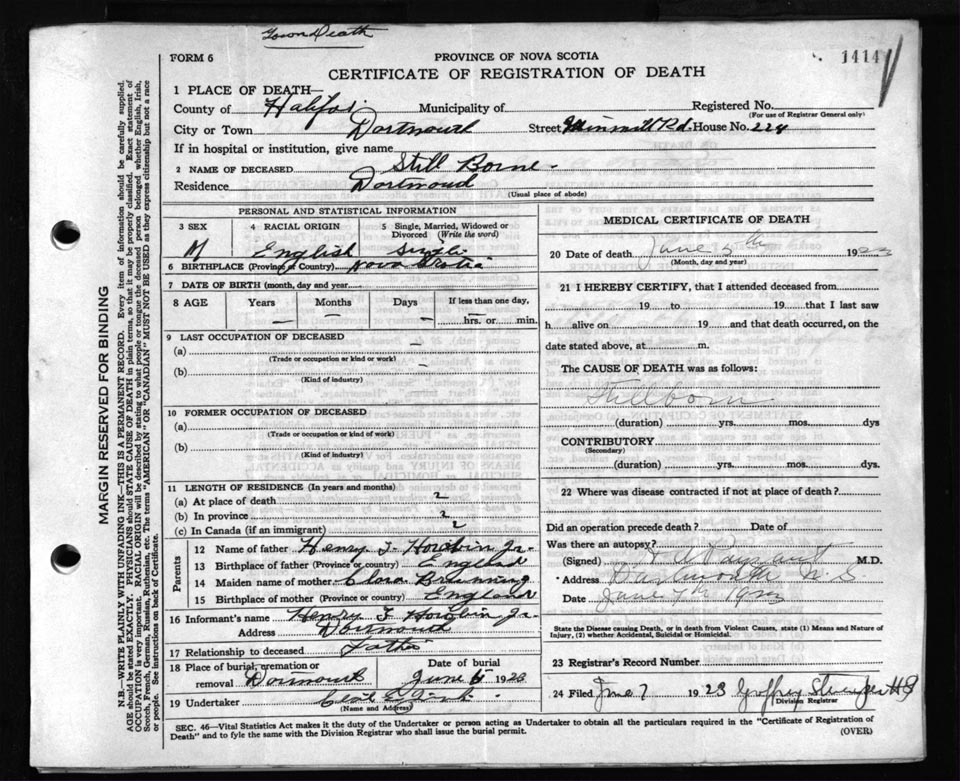 Town Death
FORM 6
PROVINCE OF NOVA SCOTIA
CERTIFICATE OF REGISTRATION OF DEATH
1414
1 PLACE OF DEATH—
County of Halifax Municipality of Registered No.
(For use of Registrar General only)
City or Town Dartmouth Street Rd. House No. 224
If in hospital or institution, give name
2 NAME OF DECEASED Still Borne
Residence Dartmoud
(Usual place of abode)
PERSONAL AND STATISTICAL INFORMATION
3 SEX 4 RACIAL ORIGIN 5 Single, Married, Widowed or Divorced (Write the word)
M English Single
6 BIRTHPLACE (Province or Country) Nova Scotia
7 DATE OF BIRTH (month, day and year)
8 AGE Years Months Days If less than one day,
— — — hrs. or min.
9 LAST OCCUPATION OF DECEASED
(a) —
(Trade or occupation or kind or work)
(b) —
(Kind of industry)
10 FORMER OCCUPATION OF DECEASED
(a)
(Trade or occupation or kind of work)
(b)
(Kind of industry)
11 LENGTH OF RESIDENCE (In years and months)
(a) At place of death 2
(b) In province 2
(c) In Canada (if an immigrant) 2
Parents
12 Name of father Henry J. Jr.
13 Birthplace of father (Province or country) England
14 Maiden name of mother Clara
15 Birthplace of mother (Province or country) England
16 Informant's name Henry J Jr.
Address Dartmoud
17 Relationship to deceased Father
18 Place of burial, cremation or removal Date of burial June 1923
19 Undertaker
(Name and Address)
MEDICAL CERTIFICATE OF DEATH
20 Date of death June 5th 1923
(Month, day and year)
21 I HEREBY CERTIFY, that I attended deceased from
19 to 19 that I last saw
h alive on 19 and that death occurred, on the
date stated above, at m.
The CAUSE OF DEATH was as follows:
Stillborn
(duration) yrs. mos. dys
CONTRIBUTORY
(Secondary)
(duration) yrs. mos. dys.
22 Where was disease contracted if not at place of death?
Did an operation precede death? Date of
Was there an autopsy?
(Signed) M.D.
Address Dartmouth N.S.
Date June 7th 1923
State the Disease causing Death, or in death from Violent Causes, state (1) Means and Nature of
Injury, (2) whether Accidental, Suicidal or Homicidal.
23 Registrar's Record Number
24 Filed June 7 1923
Division Registrar
SEC. 46—Vital Statistics Act makes it the duty of the Undertaker or person acting as Undertaker to obtain all the particulars required in the "Certificate of Registration of
Death" and to fyle the same with the Division Registrar who shall issue the burial permit.
(OVER)
MARGIN RESERVED FOR BINDING
N.B.—WRITE PLAINLY WITH UNFADING INK—THIS IS A PERMANENT RECORD. Every item of information should be carefully supplied.
AGE should be stated EXACTLY. PHYSICIANS should STATE CAUSE OF DEATH in plain terms, so that it may be properly classified. Exact statement of
OCCUPATION is very important. RACIAL ORIGIN will be described by stating to what people or tongue the deceased person belonged whether English, Irish,
Scotch, French, German, Russian, Ruthenian, etc. The terms "AMERICAN" OR "CANADIAN" MUST NOT BE USED as they express citizenship but not a race
or people. See instructions on back of Certificate.